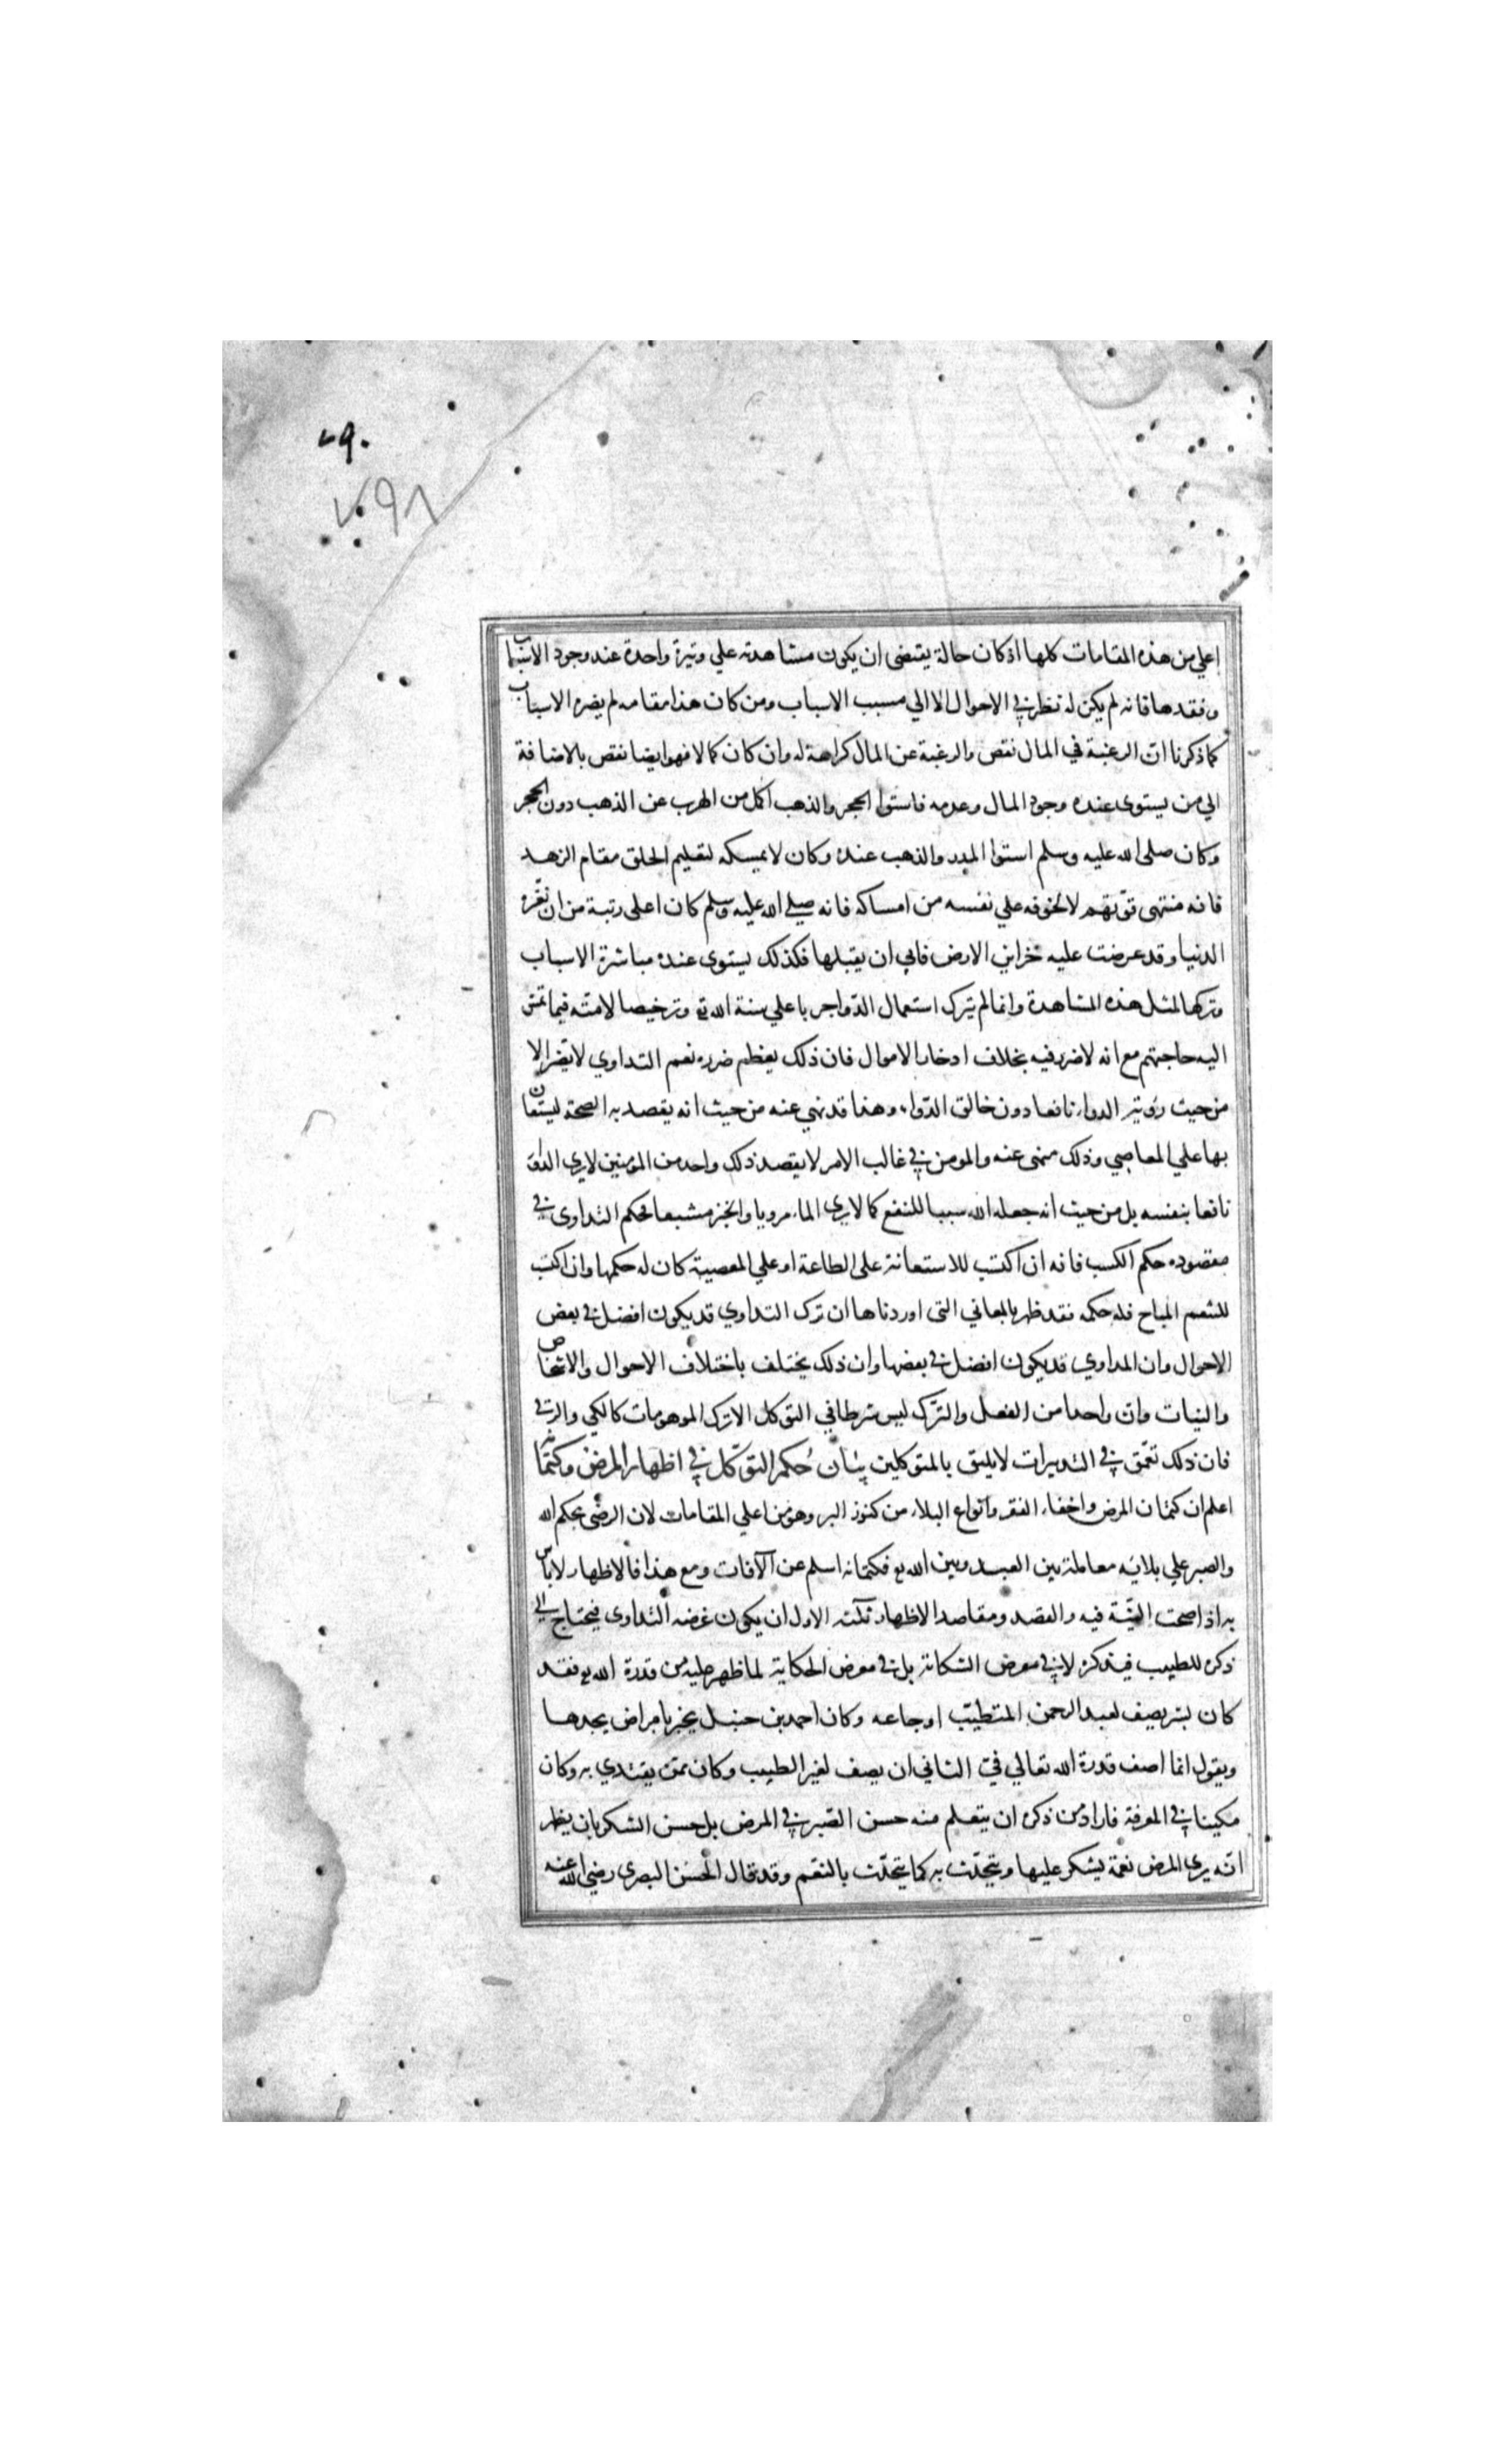 ٧٩٠
٧٩٨
اعلي من هذه المقامات كلها اذ كان حالة يقتضى ان يكون مشاهدته علي وتيرة واحدة عند وجود الاسباب
وفقدها فانه لم يكن له نظر في الاحوال الا الي مسبب الاسباب ومن كان هذا مقامه لم يضره الاسباب
كما ذكرنا ان الرغبة في المال نقص والرغبة عن المال كراهة له وان كان كمالا فهو ايضا نقص بالاضافة
الي من يستوى عنده وجود المال وعدمه فاستوا الحجر والذهب اكمل من الهرب عن الذهب دون الحجر
وكان صلى الله عليه وسلم استوا المدر والذهب عنده وكان لا يمسكه لتعليم الخلق مقام الزهد
فانه منتهى قوّتهم لا لخوفه علي نفسه من امساكه فانه صلي الله عليه وسلم كان اعلى رتبة من ان تغّره
الدنيا وقد عرضت عليه خزاين الارض فابي ان يقبلها فكذلك يستوى عنده مباشرة الاسباب
وتركها لمثل هذه المشاهدة وانما لم يترك استعمال الدّوا جريا علي سنة الله تع وترخيصا لامته فيما تمس
اليه حاجتهم مع انه لا ضرر فيه بخلاف ادخار الاموال فان ذلك يعظم ضرره نعم التداوي لا يضر الا
من حيث رؤية الدواء نافعا دون خالق الدّواء وهذا قد نهي عنه من حيث انه يقصد به الصحة ليستعان
بها علي المعاصي وذلك منهى عنه والمومن في غالب الامر لا يقصد ذلك واحد من المومنين لا يري الدوا
نافعا بنفسه بل من حيث انه جعله الله سببا للنفع كما لا يرى الماء مرويا والخبز مشبعا فحكم التداوى في
مقصوده حكم الكسب فانه ان اكتسب للاستعانة على الطاعة او علي المعصية كان له حكمها وان اكتسب
للتنعم المباح فله حكمه فقد ظهر بالمعاني التى اوردناها ان ترك التداوي قد يكون افضل في بعض
الاحوال وان المداوي قد يكون افضل في بعضها وان ذلك يختلف باختلاف الاحوال والاشخاص
والنيات وان واحدا من الفعل والتّرك ليس شرطا في التوكل الا ترك الموهومات كالكي والرقي
فان ذلك تعمّق في التدبيرات لا يليق بالمتوكلين بيان حُكم التوكّل في اظهار المرض وكتمانه
اعلم ان كتمان المرض واخفاء الفقر وانواع البلاء من كنوز البر وهو من اعلي المقامات لان الرضى بحكم الله
والصبر علي بلائه معاملة بين العبد وبين الله تع فكتمانه اسلم عن الآفات ومع هذا فالاظهار لا باس
به اذا صحت النيّة فيه والقصد ومقاصد الاظهار ثلثه الاول ان يكون غرضه التداوى فيحتاج الي
ذكره للطبيب فيذكره لا في معرض الشكاتة بل في معرض الحكاية لما ظهر عليه من قدرة الله تع فقد
كان بشر يصف لعبد الرحمن المتطيّب اوجاعه وكان احمد بن حنبل يخبر بامراض يجدها
ويقول انما اصف قدرة الله تعالي فيّ الثاني ان يصف لغير الطبيب وكان ممن يقتدي به وكان
مكينا في المعرفة فاراد من ذكره ان يتعلم منه حسن الصّبر في المرض بل حسن الشكر بان يظهر
انّه يرى المرض نعمة يشكر عليها ويتحدّث به كما يتحدّث بالنعّم وقد قال الحَسَن البصرى رضي الله عنه